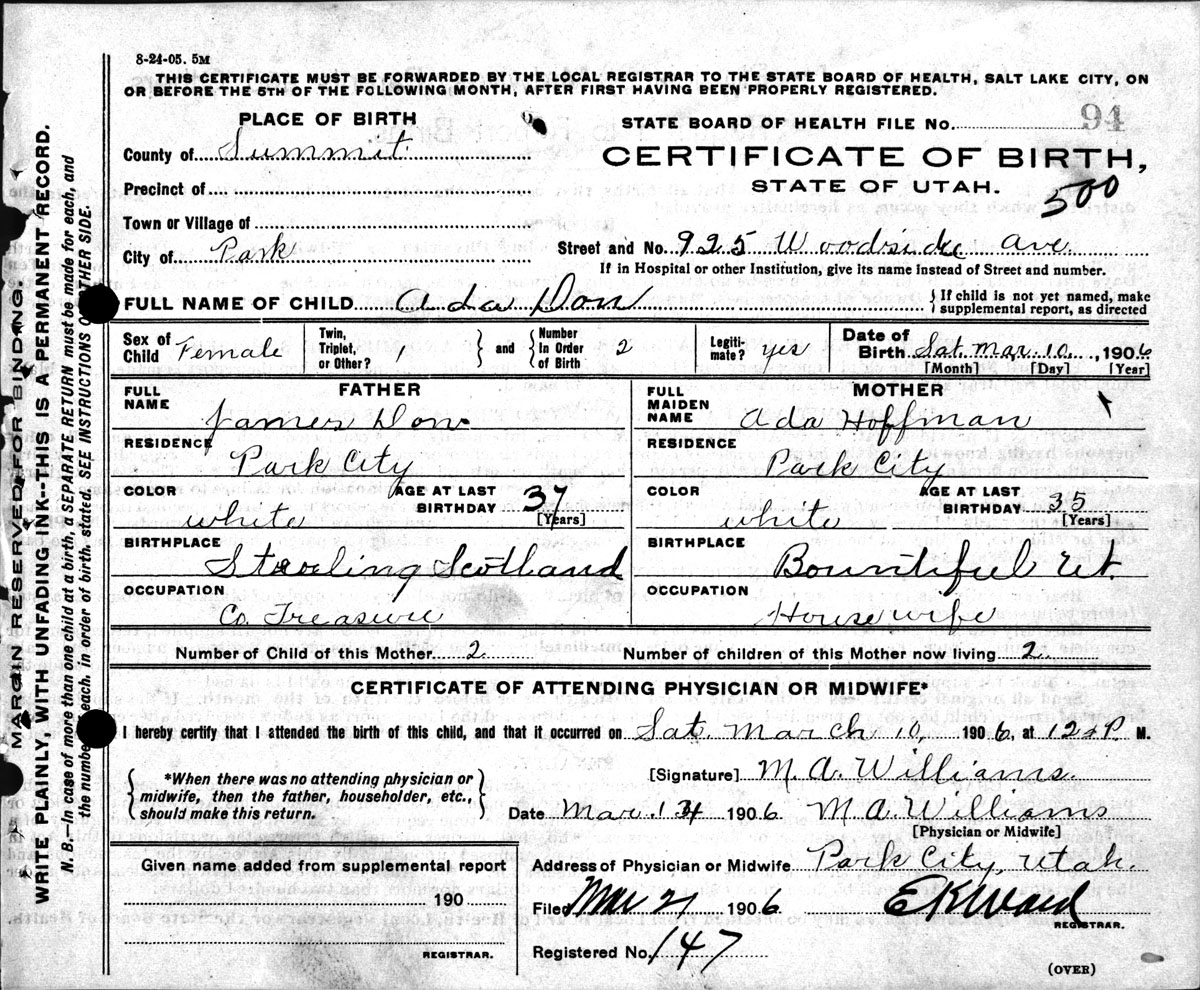 8-24-05. 5M
THIS CERTIFICATE MUST BE FORWARDED BY THE LOCAL REGISTRAR TO THE STATE BOARD OF HEALTH, SALT LAKE CITY, ON
OR BEFORE THE 5TH OF THE FOLLOWING MONTH, AFTER FIRST HAVING BEEN PROPERLY REGISTERED.
PLACE OF BIRTH
STATE BOARD OF HEALTH FILE No. 94
County of Summit
CERTIFICATE OF BIRTH,
STATE OF UTAH.
500
Precinct of
Town or Village of
City of Park
Street and No. 925 Woodside Ave.
If in Hospital or other Institution, give its name instead of Street and number.
FULL NAME OF CHILD Ada Don
If child is not yet named, make
supplemental report, as directed
Sex of Child Female
Twin, Triplet, or Other? 1
and
Number In Order of Birth 2
Legiti-mate? yes
Date of Birth Sat. Mar. 10, 1906
[Month] [Day] [Year]
FATHER
FULL NAME James Don
RESIDENCE
Park City
COLOR
white
AGE AT LAST BIRTHDAY 37
[Years]
BIRTHPLACE
Scotland
OCCUPATION
Co. Treasure
MOTHER
FULL MAIDEN NAME Ada Hoffman
RESIDENCE
Park City
COLOR
white
AGE AT LAST BIRTHDAY 35
[Years]
BIRTHPLACE
Bountiful Ut.
OCCUPATION
House wife
Number of Child of this Mother 2
Number of children of this Mother now living 2
CERTIFICATE OF ATTENDING PHYSICIAN OR MIDWIFE*
I hereby certify that I attended the birth of this child, and that it occurred on Sat. March 10, 1906, at 12 P. M.
*When there was no attending physician or
midwife, then the father, householder, etc.,
should make this return.
[Signature] M. A. Williams.
Date Mar. 1906 M A Williams
[Physician or Midwife]
Given name added from supplemental report
190
REGISTRAR.
Address of Physician or Midwife Park City, Utah.
Filed Mar 21 1906 E K Ward
REGISTRAR.
Registered No. 147
(OVER)
MARGIN RESERVED FOR BINDING.
WRITE PLAINLY, WITH UNFADING INK--THIS IS A PERMANENT RECORD.
N. B.--In case of more than one child at a birth, a SEPARATE RETURN must be made for each, and
the number each, in order of birth, stated. SEE INSTRUCTIONS ON OTHER SIDE.